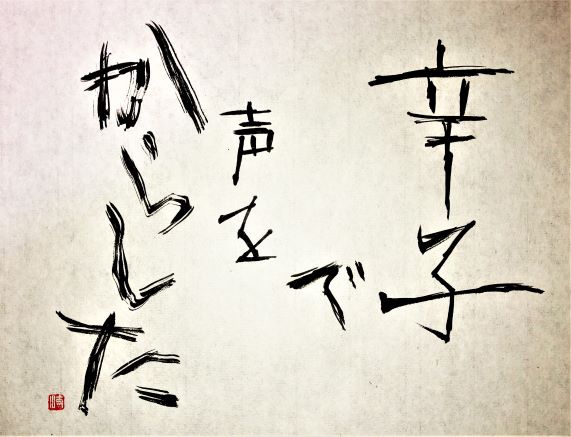 辛子で
声を
からした